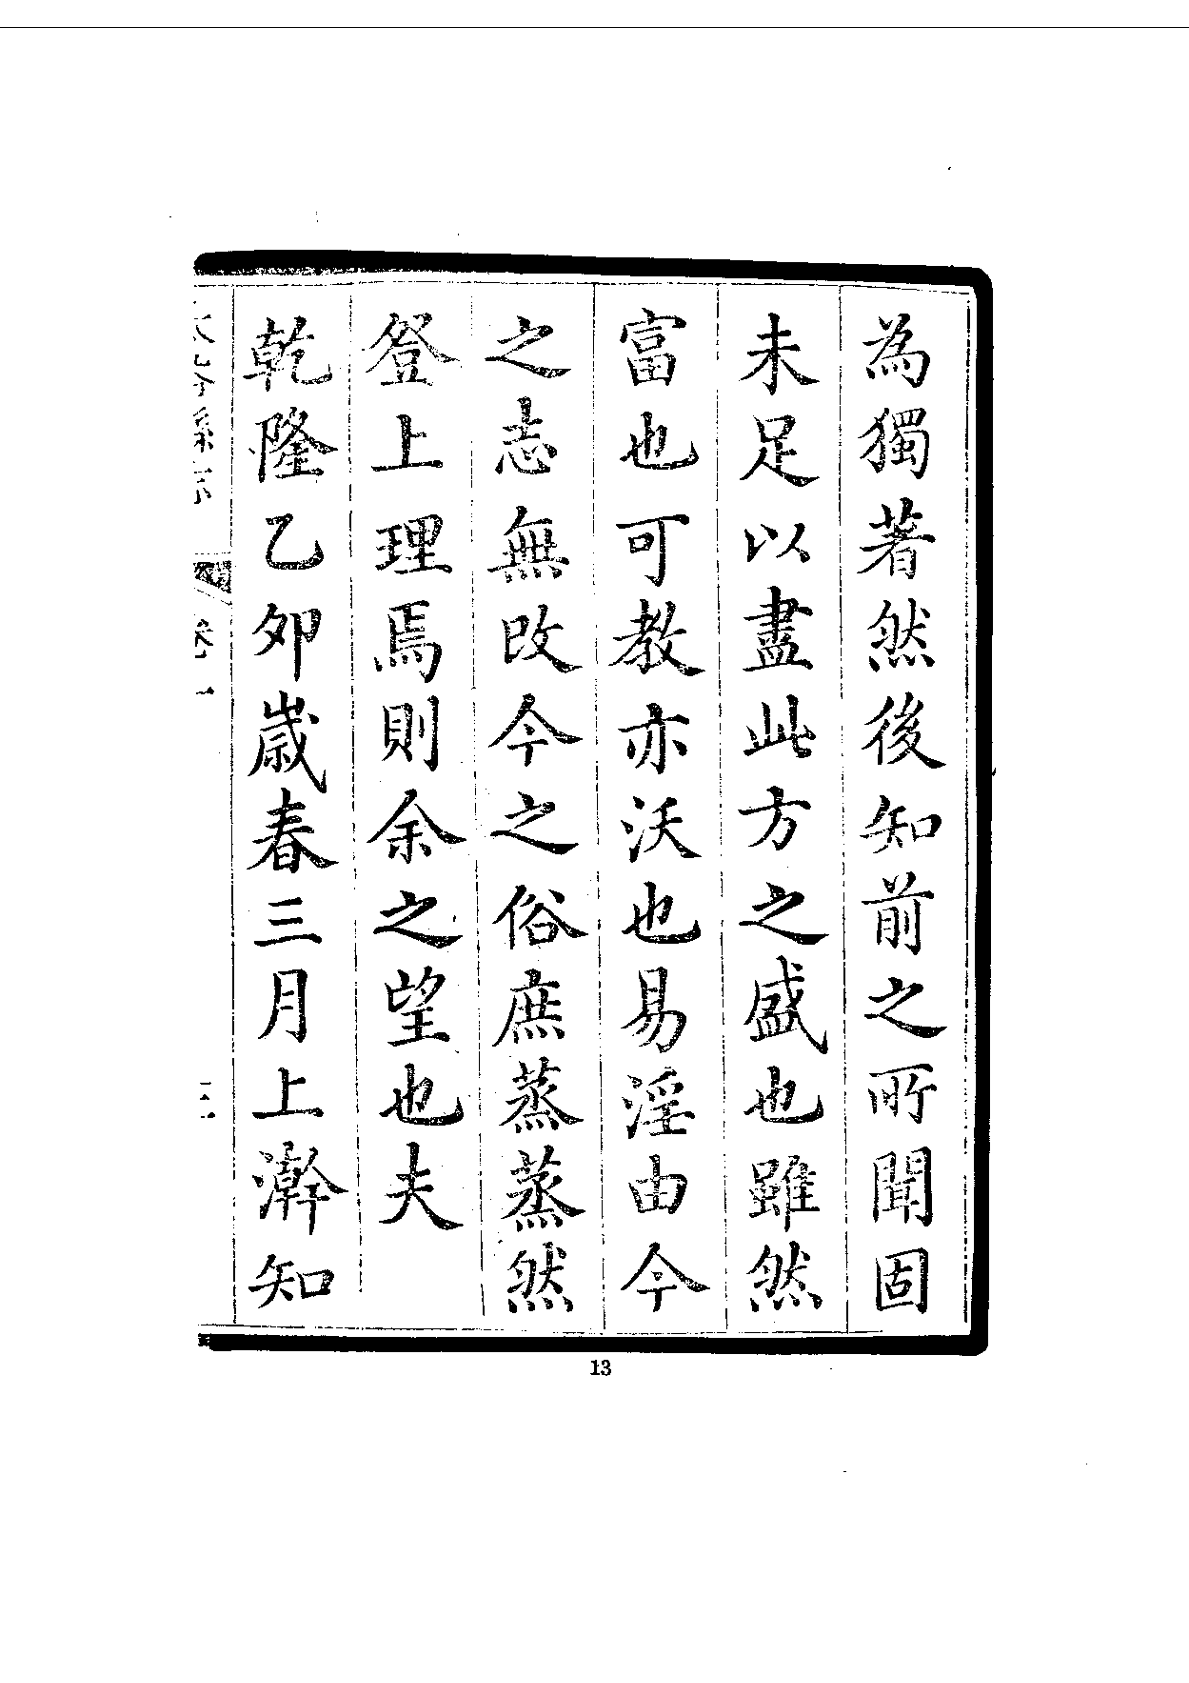 為獨著然後知前之所聞固
未足以盡此方之盛也雖然
富也可教亦沃也易淫由今
之志無改今之俗庶蒸蒸然
登上理焉則余之望也夫
乾隆乙夘歲春三月上澣知
縣志
卷一
三
13